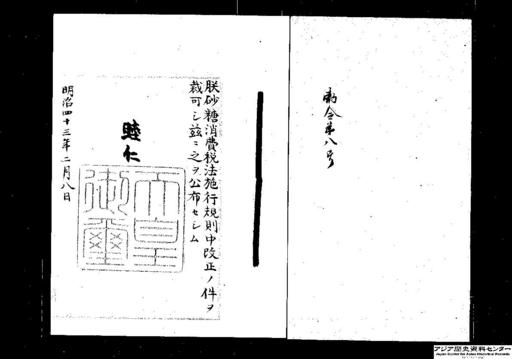 勅令第八号
朕砂糖消費税法施行規則中改正ノ件ヲ
裁可シ茲ニ之ヲ公布セシム
睦仁
天皇御璽
明治四十三年二月八日
アジア歴史資料センター
Japan Center for Asian Historical Records